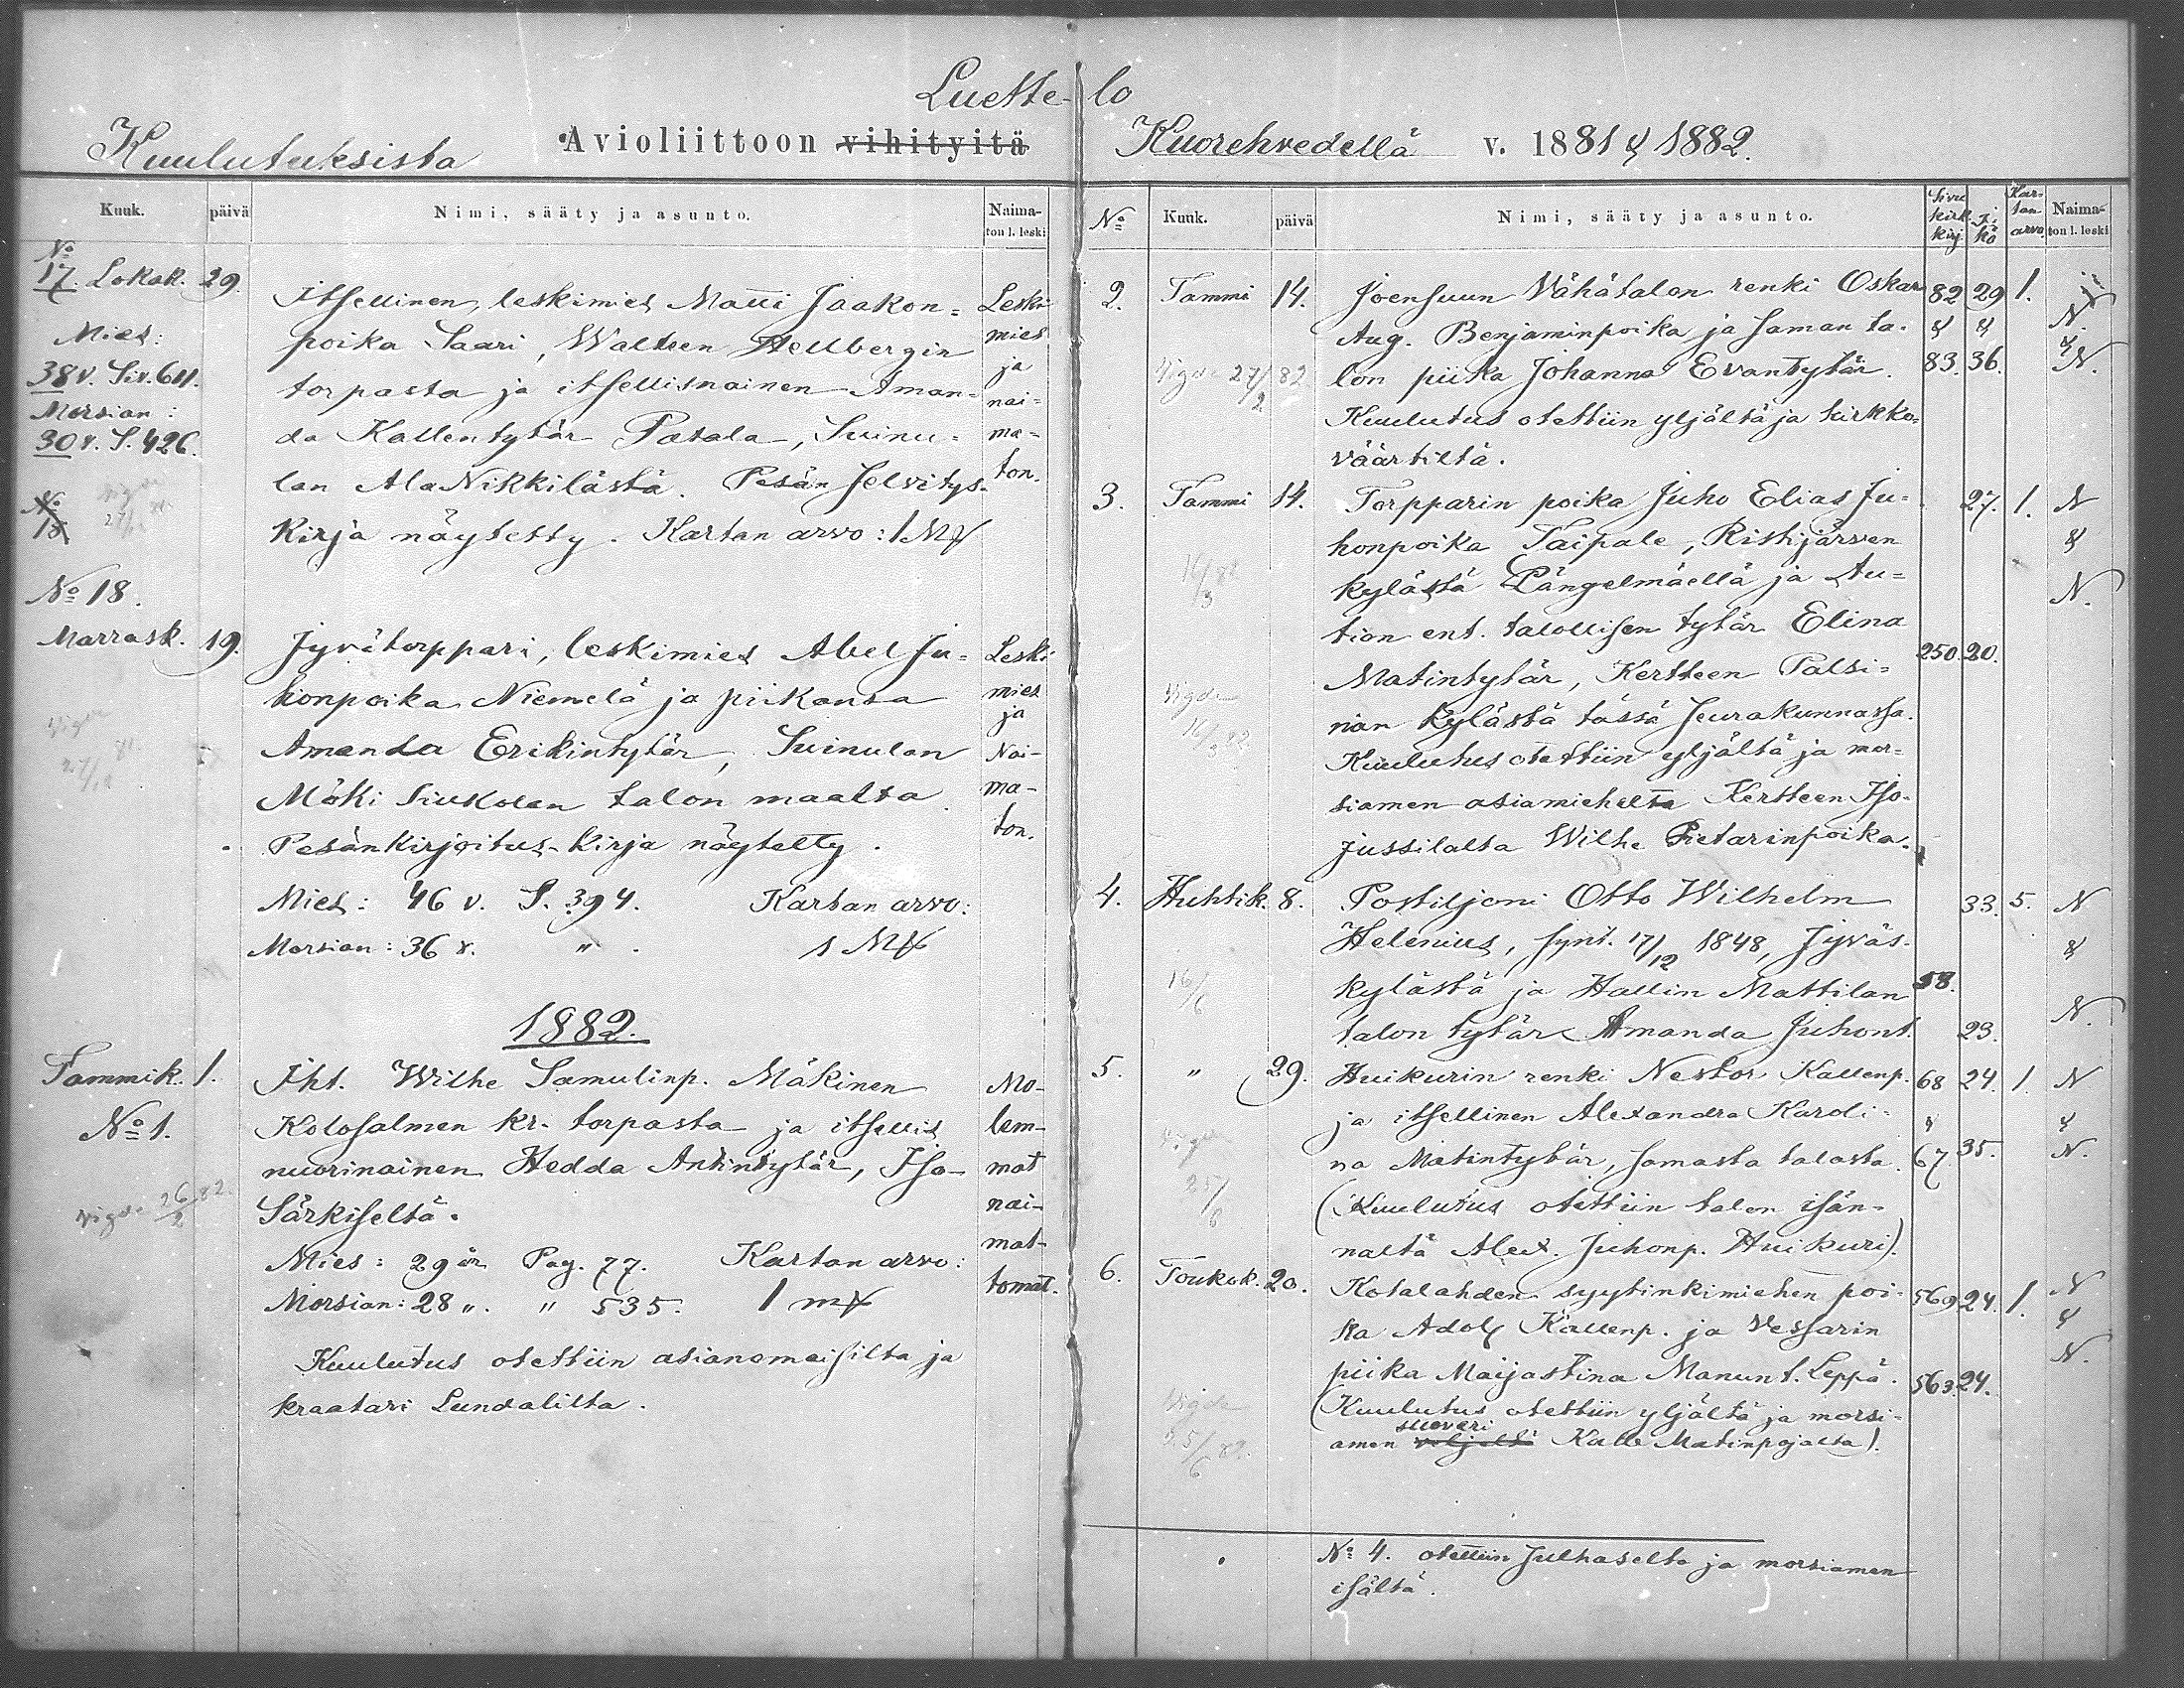 Luette-lo
Kuulutuksista Avioliittoon vihityitä Kuorehvedellä v. 1881 & 1882.
Kuuk. päivä Nimi, sääty ja asunto. Naimaton l. leski
No 17. Lokak. 29.
Itsellinen, leskimies Matti Jaakon=
poika Saari, Walteen Hellbergin
torpasta ja itsellisnainen Aman=
da Kallentytär Patala, Suinu=
lan AlaNikkilästä. Pesän selvitys-
kirja näytetty. Kartan arvo: 1 Mk
Leski
mies
ja
nai=
ma=
ton.
Mies:
38 v. Siv. 611.
Morsian:
30 v. S. 426.
No
18
No 18.
Marrask. 19.
Jyvätorppari, leskimies Abel Ju=
honpoika Niemelä ja piikansa
Amanda Erikintytär, Suinulan
Mäki Siukolan talon maalta.
Pesänkirjoitus-kirja näytetty.
Mies: 46 v. S. 394. Kartan arvo:
Morsian: 36 v. " . 1 Mk
Leski
mies
ja
Nai-
ma-
ton.
1882.
Tammik. 1.
No 1.
Iht. Wilhe Samulinp. Mäkinen
Kolosalmen kr. torpasta ja itsellis
nuorinainen Hedda Antintytär, Iso-
Särkiseltä.
Mies: 29 år Pag. 77. Kartan arvo:
Morsian: 28 ". " 535. 1 mk
Kuulutus otettiin asianomaisilta ja
kraatari Lundalilta.
Mo-
lem-
mat
nai-
mat-
tomat.
Vigde 26/2 82.
No Kuuk. päivä Nimi, sääty ja asunto. Sivu kirk. kirj. Ikä Kartan arvo. Naimaton l. leski
2. Tammi 14. Joensuun Vähätalon renki Oskar 82 29 1.
Aug. Benjaminpoika ja saman ta- & & N.
Vigde 27/2 82 lon piika Johanna Evantytär. 83. 36. & N.
Kuulutus otettiin yljältä ja kirkko=
väärtiltä.
3. Tammi 14. Torpparin poika Juho Elias Ju= 27. 1. N
honpoika Taipale, Ristijärven &
16/3 82 kylästä Längelmäellä ja Au= N.
tion ent. talollisen tytär Elina
Matintytär, Kertteen Palsi= 250. 20.
Vigde nan kylästä tässä seurakunnassa.
16/3 82 Kuulutus otettiin yljältä ja mor=
siamen asiamieheltä Kertteen Iso-
jussilalta Wilhe Pietarinpoika.
4. Huhtik. 8. Postiljoni Otto Wilhelm 33. 5. N
Helenius, synt. 17/12 1848, Jyväs- &
16/6 kylästä ja Hallin Mattilan 58. N.
talon tytär Amanda Juhont. 23.
5. " 29. Huikurin renki Nestor Kallenp. 68 24. 1 N
ja itsellinen Alexandra Karoli- & &
Vigde na Matintytär, samasta talosta. 67. 35. N.
25/6 (Kuulutus otettiin talon isän-
nältä Alex. Juhonp. Huikuri).
6. Toukok. 20. Kotalahden syytinkimiehen poi- 569 24. 1. N
ka Adolf Kallenp. ja Vessarin &
piika Maijastina Manunt. Leppä. 563 24. N.
Vigde (Kuulutus otettiin yljältä ja morsi=
25/6 82. amen veljeltä Kalle Matinpojalta).
No 4. otettiin sulhaselta ja morsiamen
isältä.